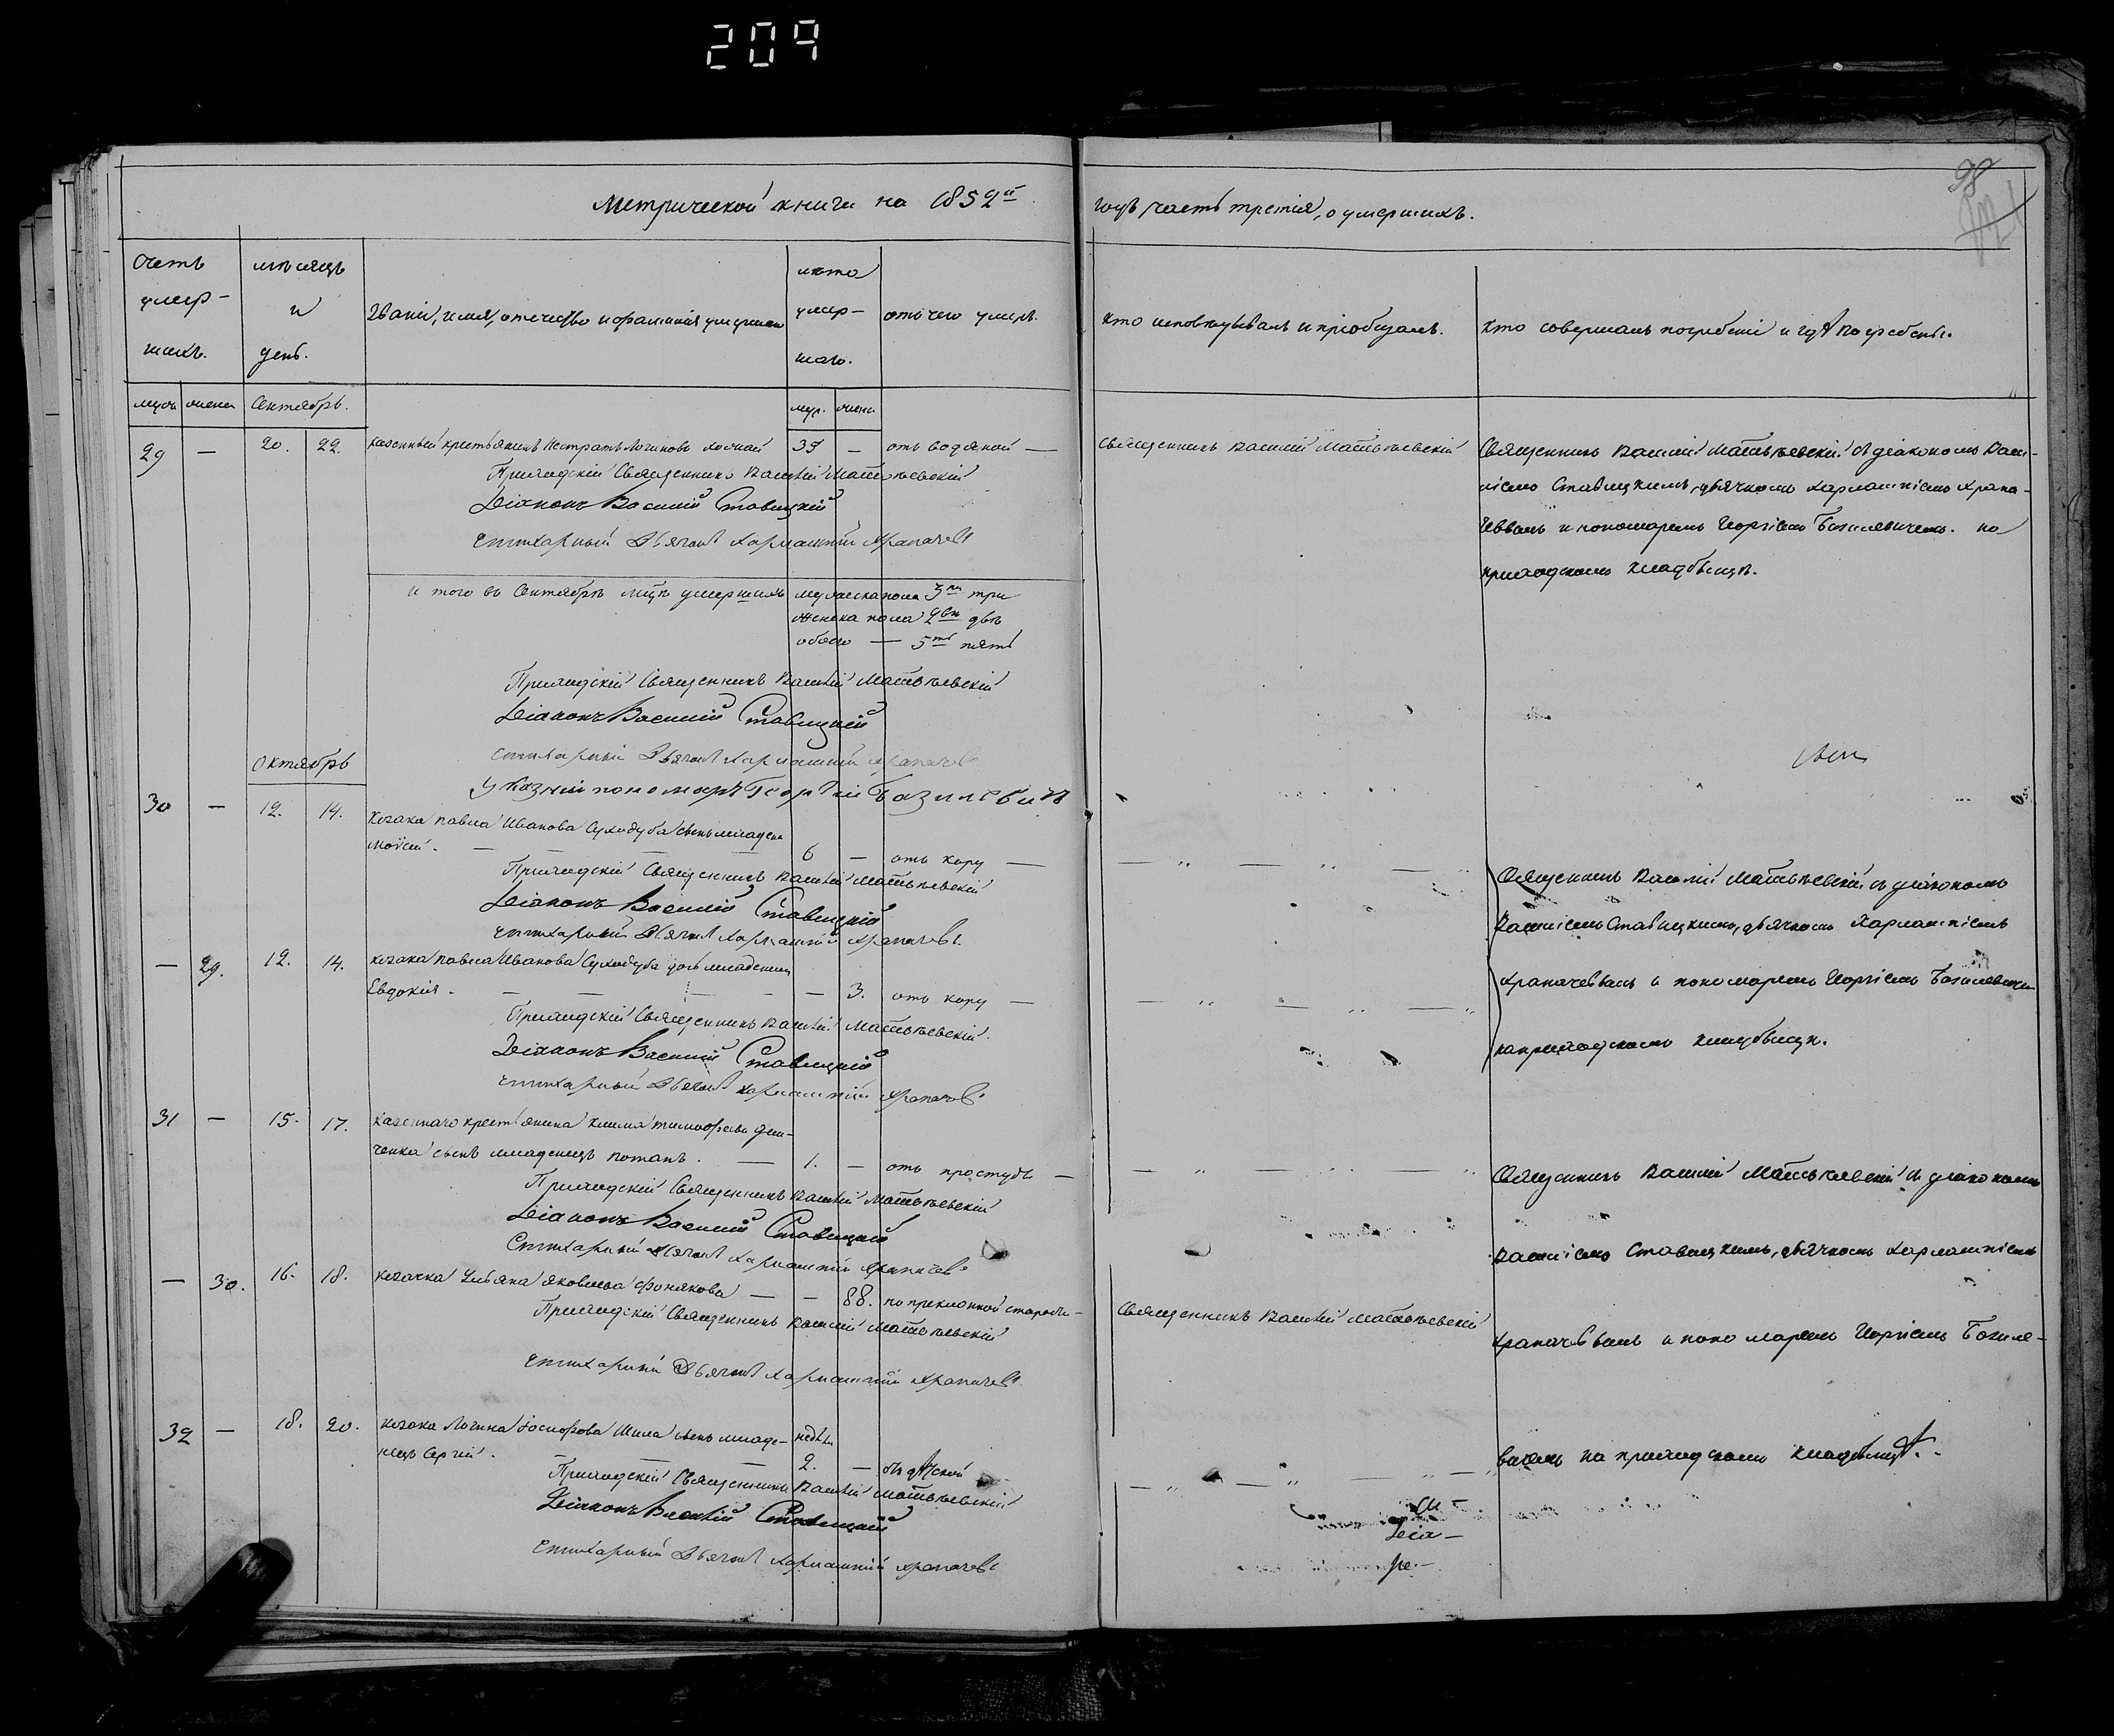 209
98
Метрической книги на 1852й годъ, часть третія, о умершихъ.
Счетъ умер-
шихъ.
мѣсяцъ
и
день.
Званіе, имя, отечество и фамилія умершаго
лѣта
умер-
шаго.
отъ чего умеръ.
кто исповѣдывалъ и пріобщалъ.
кто совершалъ погребеніе и гдѣ погребены.
муж. женск. Сентябрь. муж. женс.
29 — 20. 22. казенный крестьянинъ Логиновъ 39 — отъ водяной —
Приходскій Священникъ Василій Матвѣевскій
Діаконъ Василій Ставицкій
Стихарный Дьячокъ Харлампій Храпачевъ
и того въ Сентябрѣ мцѣ умершихъ мужеска пола 3ри три
женска пола 2вѣ двѣ
обоего — 5ть пять
Приходскій Священникъ Василій Матвѣевскій
Діаконъ Василій Ставицкій
стихарный Дьячокъ Харлампій Храпачевъ
Указный пономарь Георгій Базилевичъ
Октябрь
30 — 12. 14. козака Павла Иванова Суходуба сынъ младен
Моѵсей. — 6 — отъ кору —
Приходскій Священникъ Василій Матвѣевскій
Діаконъ Василій Ставицкій
стихарный Дьячокъ Харлампій Храпачевъ.
— 29. 12. 14. козака Павла Иванова Суходуба дочь младенец
Евдокія. — — 3. отъ кору —
Приходскій Священникъ Василій Матвѣевскій.
Діаконъ Василій Ставицкій
стихарный Дьячокъ Харлампій Храпачевъ.
31 — 15. 17. казеннаго крестьянина Клима Тимофеева Дем-
ченка сынъ младенецъ Потапъ. — 1. — отъ простуды —
Приходскій Священникъ Василій Матвѣевскій
Діаконъ Василій Ставицкій
Стихарный Дьячокъ Харлампій Храпачевъ
— 30. 16. 18. козачка Ульяна Яковлева — — 88. по преклонной старости-
Приходскій Священникъ Василій Матвѣевскій
стихарный Дьячокъ Харлампій Храпачевъ
32 — 18. 20. козака Логина Шила сынъ младе- недѣл
нецъ Сергій. — 2. —
Приходскій Священникъ Василій Матвѣевскій
Діаконъ Василій Ставицкій
стихарный Дьячокъ Харлампій Храпачевъ
Священникъ Василій Матвѣевскій
Священникъ Василій Матвѣевскій съ діакономъ Васи-
ліемъ Ставицкимъ, дьячкомъ Харлампіемъ Храпа-
чевымъ и пономаремъ Георгіемъ Базилевичемъ. на
приходскомъ кладбищѣ.
Священникъ Василій Матвѣевскій съ діакономъ
Василіемъ Ставицкимъ, дьячкомъ Харлампіемъ
Храпачевымъ и пономаремъ Георгіемъ Базилевичемъ
на приходскомъ кладбищѣ.
Священникъ Василій Матвѣевскій съ діакономъ
Василіемъ Ставицкимъ, дьячкомъ Харлампіемъ
Священникъ Василій Матвѣевскій
Храпачевымъ и пономаремъ Георгіемъ Базиле-
вичемъ на приходскомъ кладбищѣ.
Діа-